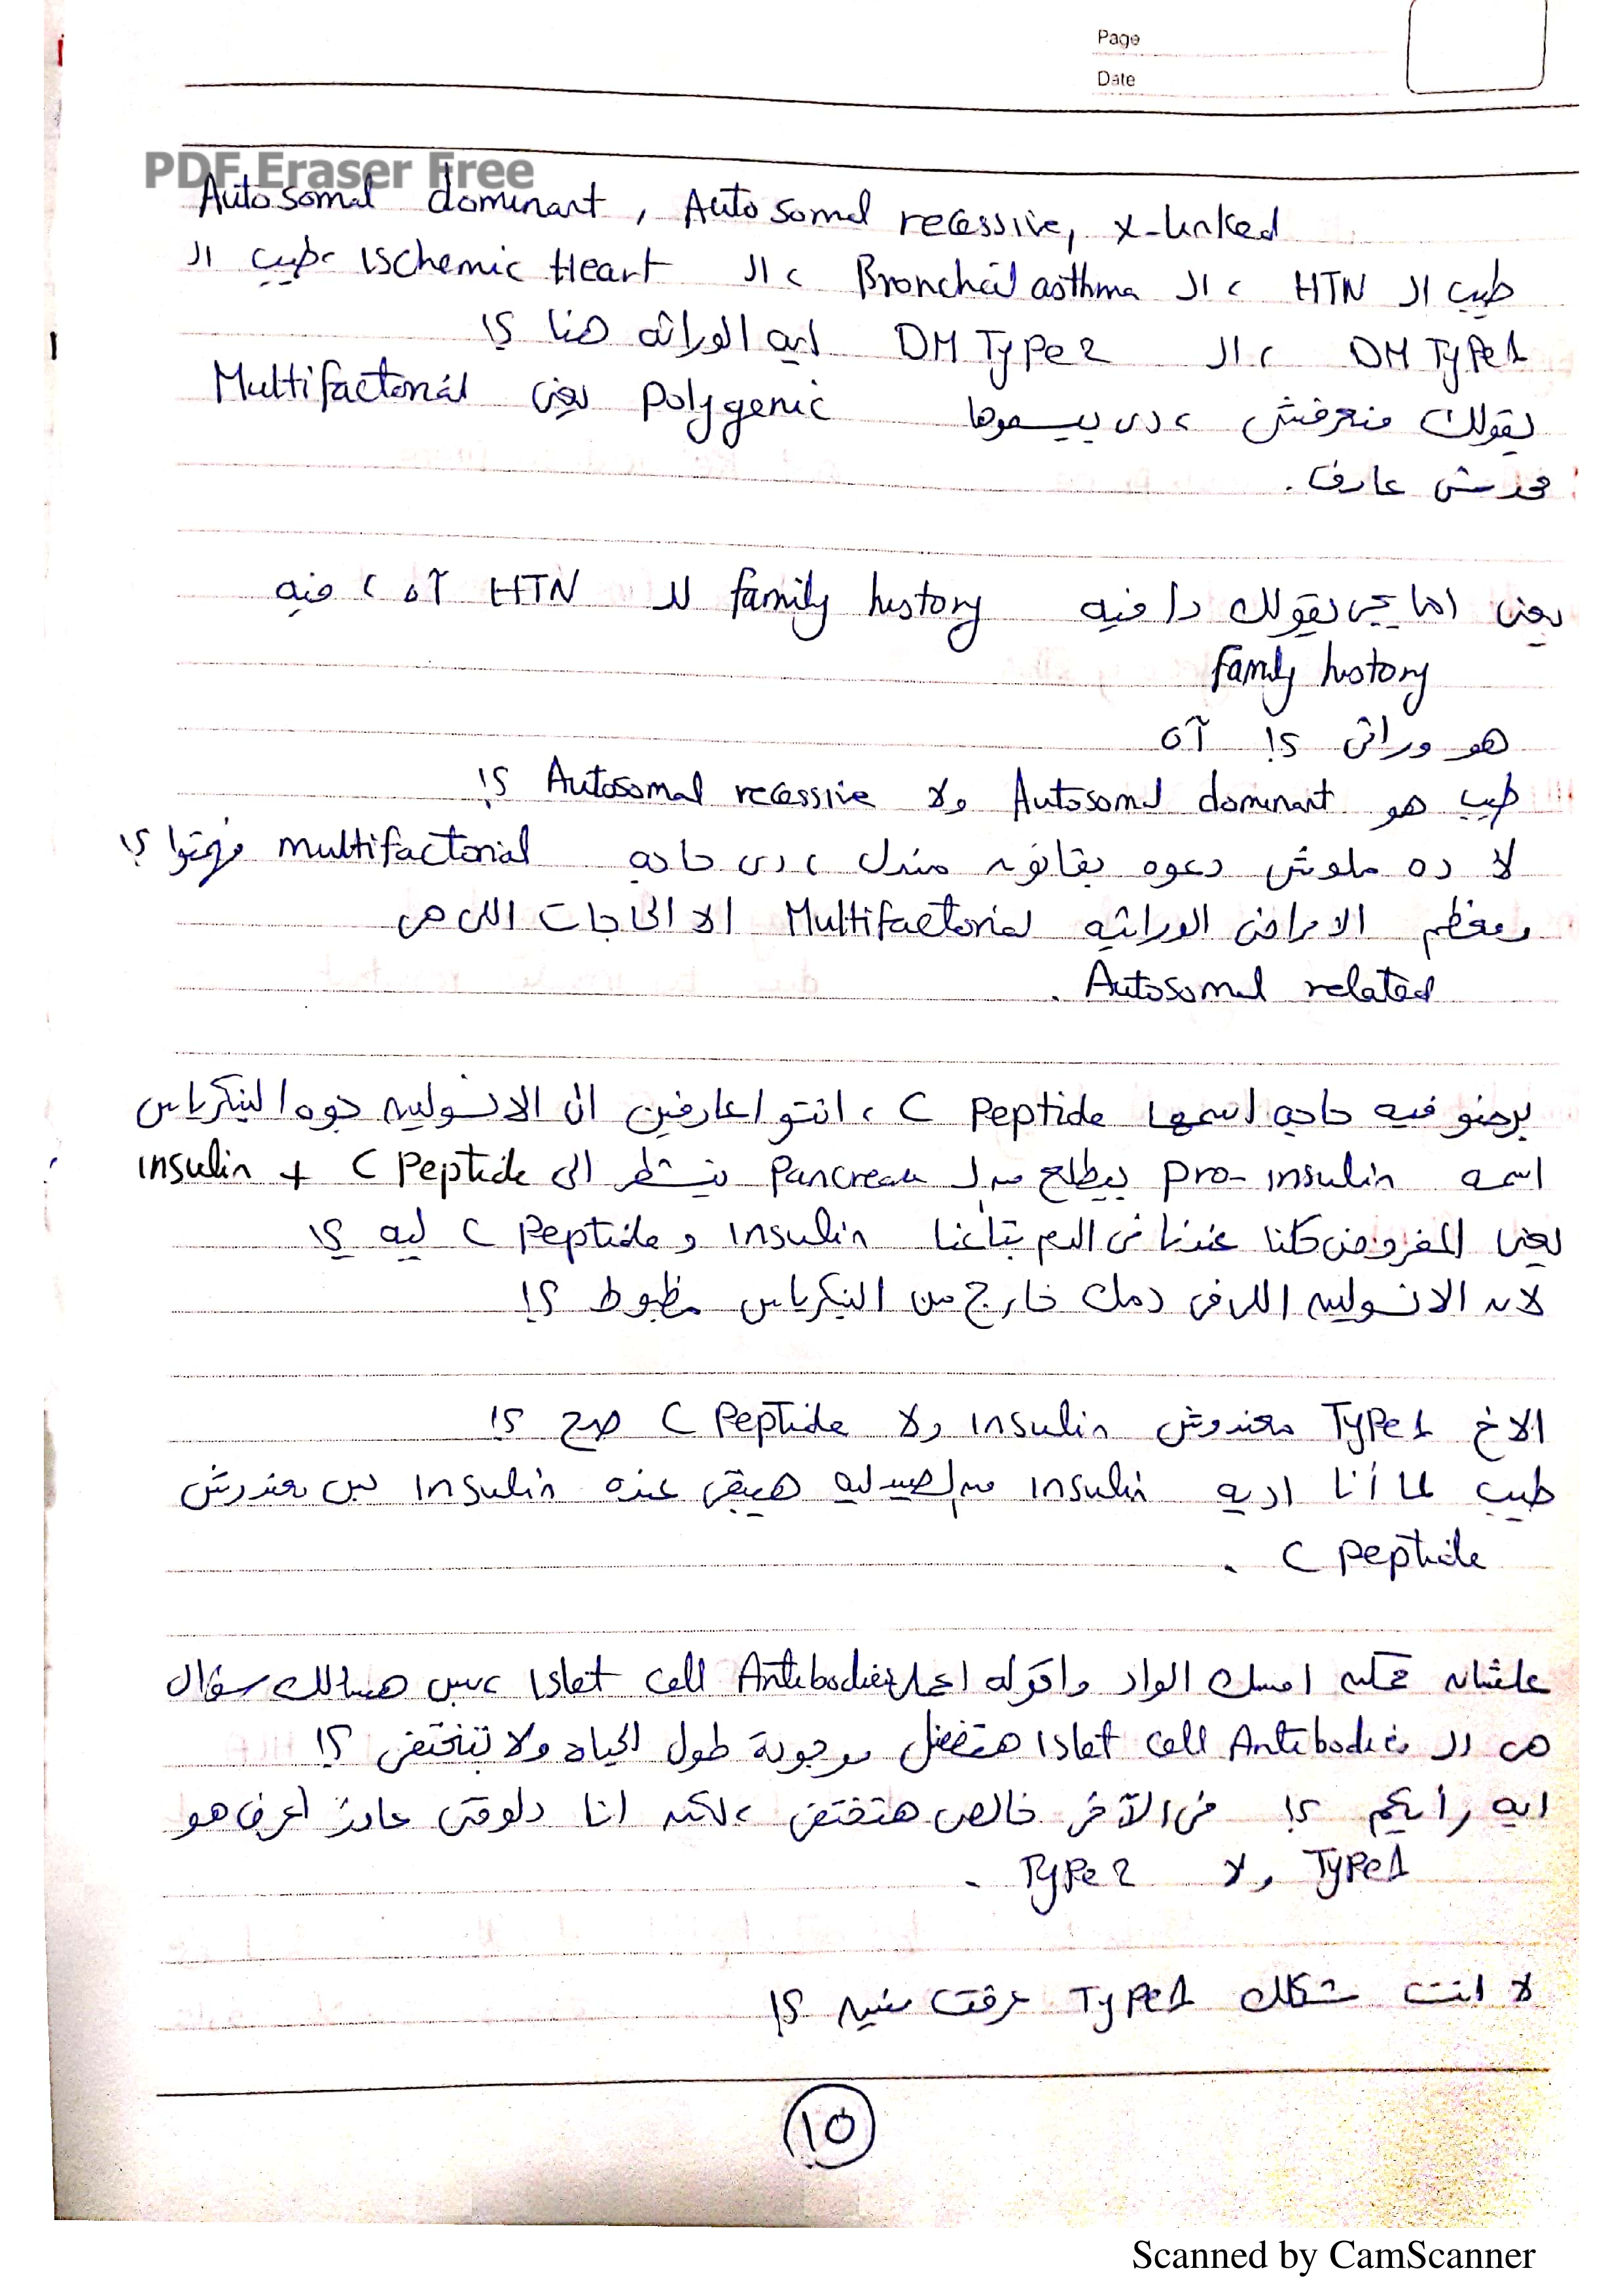 Page
Date
PDF Eraser Free
Autosomal dominant , Autosomal recessive, x-linked
طيب ال HTN ، ال Bronchial asthma ، ال Ischemic Heart ، طيب ال
DM Type 1 ، ال DM Type 2 ايه الوراثه هنا ؟!
يقولك منعرفش ، دى بيسموها Polygenic يعنى Multifactorial
محدش عارف .
يعنى اما ييجى يقولك دا فيه family history لل HTN آه ، فيه
family history
هو وراثى ؟! آه
طيب هو Autosomal dominant ولا Autosomal recessive ؟!
لا ده ملوش دعوه بقانون مندل ، دى حاجه multifactorial فهمتوا ؟!
ومعظم الامراض الوراثيه Multifactorial الا الحاجات اللى هى
Autosomal related .
برضو فيه حاجه اسمها C Peptide ، انتوا عارفين ان الانسولين جوه البنكرياس
اسمه pro-insulin بيطلع من ال Pancreas ينشطر الى insulin + C Peptide
يعنى المفروض كلنا عندنا فى الدم بتاعنا insulin و C Peptide ليه ؟!
لان الانسولين اللى فى دمك خارج من البنكرياس مظبوط ؟!
الاخ Type 1 معندوش insulin ولا C Peptide صح ؟!
طيب لما أنا اديه insulin من الصيدليه هيبقى عنده insulin بس معندوش
C peptide .
علشان ممكن امسك الواد واقوله اعمل Islet cell Antibodies ، بس هسالك سؤال
هى ال Islet cell Antibodies هتفضل موجودة طول الحياه ولا تختفى ؟!
ايه رأيكم ؟! فى الآخر خالص هتختفى ، لكن انا دلوقتى عايز اعرف هو
Type 1 ولا Type 2 .
لا انت شكلك Type 1 عرفت منين ؟!
١٥
Scanned by CamScanner